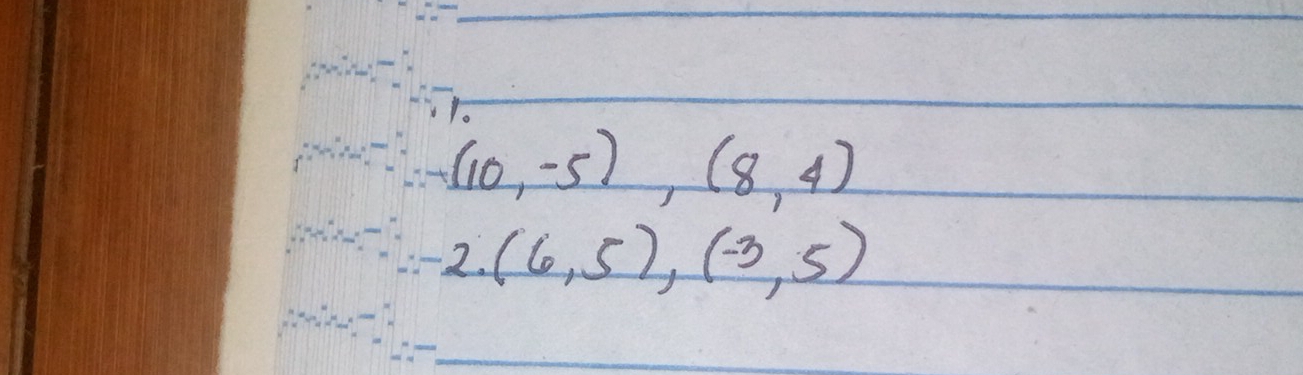 1.
(10, -5) , (8, 4)
2. (6, 5), (-3, 5)